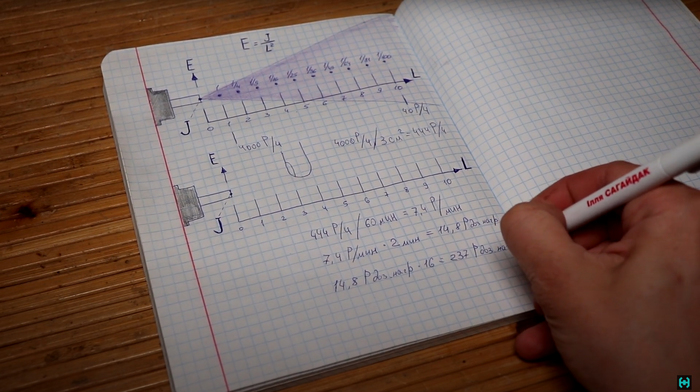 E = J/L²
E
1 1/4 1/9 1/16 1/25 1/36 1/49 1/64 1/81 1/100
L
J
0 1 2 3 4 5 6 7 8 9 10
40 Р/ч
4000 Р/ч
4000 Р/ч / 3см² = 444 Р/ч
E
L
J
0 1 2 3 4 5 6 7 8 9 10
444 Р/ч / 60 мин = 7,4 Р/мин
7,4 Р/мин · 2 мин = 14,8 Р доз. нагр.
14,8 Р доз. нагр · 16 = 237 Р доз. на
Ілля САГАЙДАК